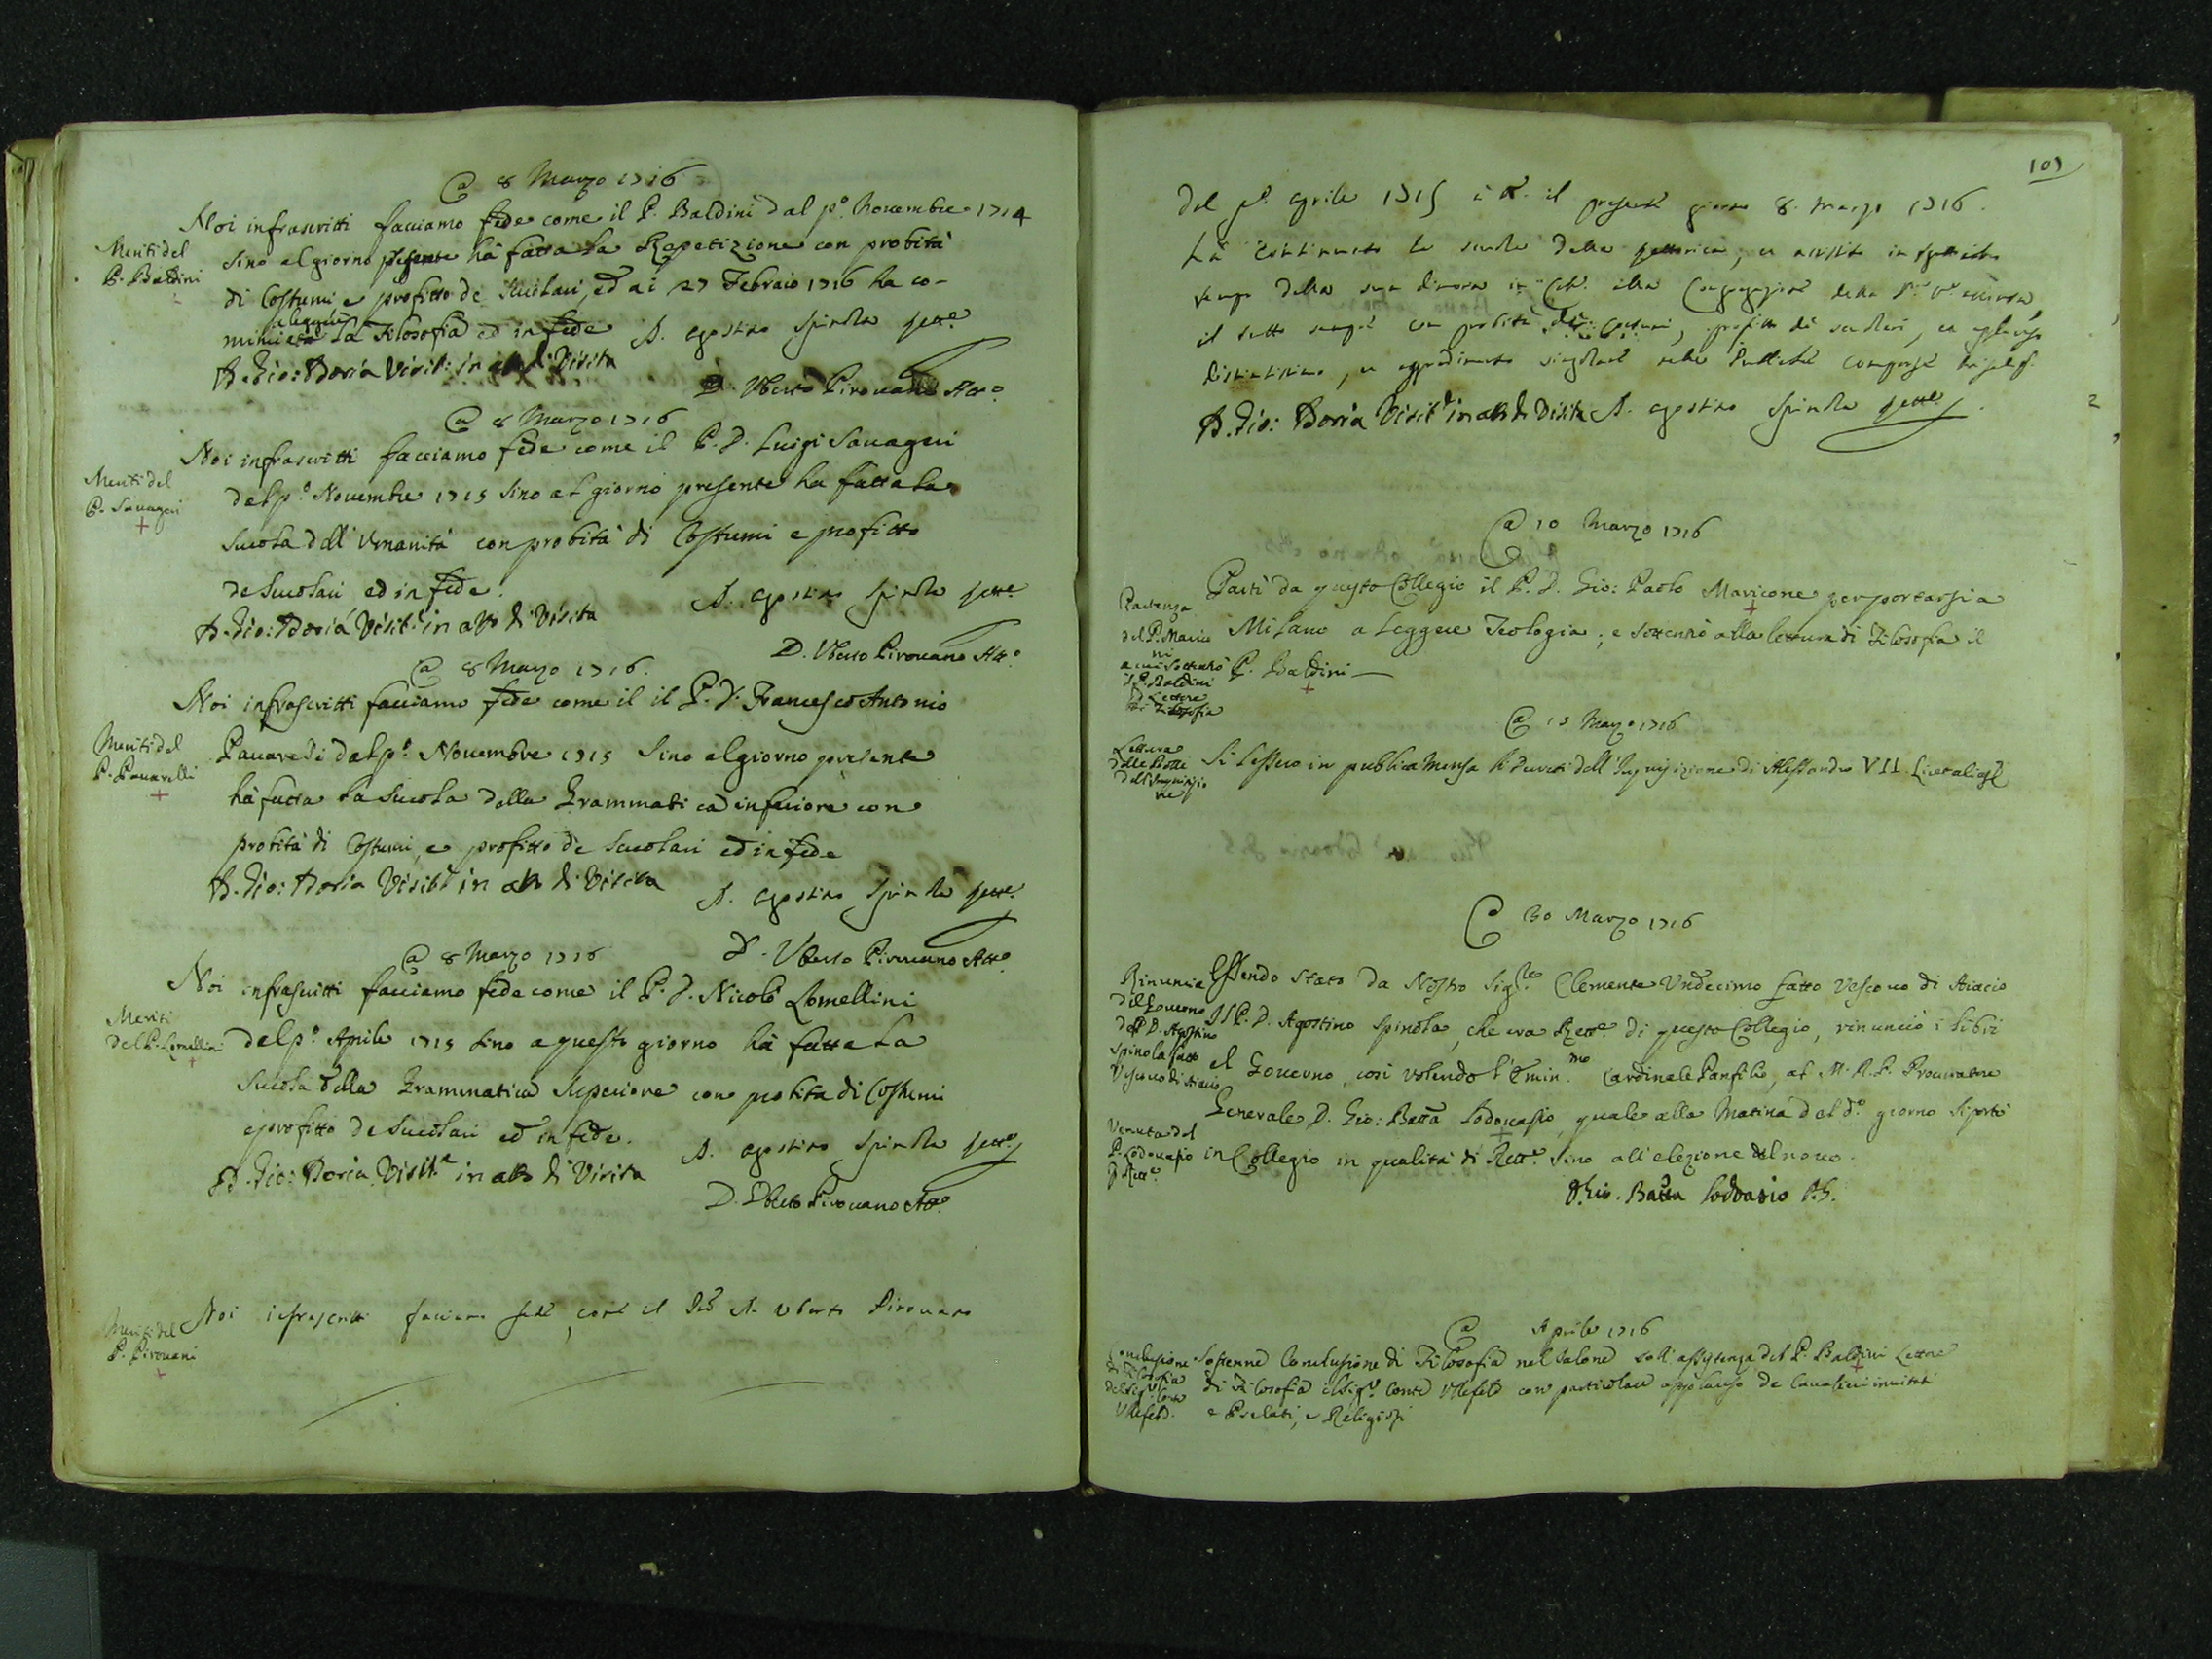 @ 8 Marzo 1716
Meriti del
P. Baldini
Noi infrascritti facciamo fede come il P. Baldini dal p.º Novembre 1714
sino al giorno presente hà fatta la Repetizione con probità
di Costumi e profitto de Scuolari, ed ai 27 Febraio 1716 ha co-
minciato a leggere la Filosofia ed in fede D. Agostino Spinola Rett.e
D. Gio: Doria Visit.e in atto di Visita
D. Uberto Pirovano Att.º
@ 8 Marzo 1716
Meriti del
P. Savageri
Noi infrascritti facciamo fede come il P. D. Luigi Savageri
dal p.º Novembre 1715 sino al giorno presente ha fatta la
Scuola dell' Umanità con probità di Costumi e profitto
de Scuolari ed in fede.
D. Agostino Spinola Rett.e
D. Gio: Doria Visit.e in atto di Visita
D. Uberto Pirovano Att.º
@ 8 Marzo 1716.
Meriti del
P. Pavarelli
Noi infrascritti facciamo fede come il il P. D. Francesco Antonio
dal p.º Novembre 1715 sino al giorno presente
hà fatta la Scuola della Grammatica inferiore con
probità di Costumi, e profitto de Scuolari ed in fede
D. Gio: Doria Visit.e in atto di Visita
D. Agostino Spinola Rett.e
D. Uberto Pirovano Att.º
@ 8 Marzo 1716
Meriti
del P. Lomellini
Noi infrascritti facciamo fede come il P. D. Nicolò Lomellini
dal p.º Aprile 1715 sino a questo giorno hà fatta la
Scuola della Grammatica Superiore con probità di Costumi
e profitto de Scuolari ed in fede.
D. Agostino Spinola Rett.e
D. Gio: Doria Visit.e in atto di Visita
D. Uberto Pirovano Att.º
Meriti del
P. Pirovani
Noi infrascritti facciamo fede, come il Pre D. Uberto Pirovano
101
Dal p.º Aprile 1715 il presente giorno 8. Marzo 1716.
hà continuato la scuola della Rettorica, ed assistito in
tempo della sua dimora in alla Congregazione della
il tutto sempre con probità di costumi, profitto de scuolari, ed applauso
distintissimo, ed aggradimento singolare nelle
D. Gio: Doria Visit.e in atto di Visita D. Agostino Spinola Rett.e
@ 10 Marzo 1716
Partenza
del P. Marico
ni
a cui sottentrò
il P. Baldini
Lettore
di Filosofia
Partì da questo Collegio il P. D. Gio: Paolo Maricone per portarsi a
Milano a leggere Teologia; e sottentrò alla lettura di Filosofia il
P. Baldini
@ 15 Marzo 1716
Lettura
delle Bolle
dell'Inquisizio
ne
Si lessero in publica Mensa li Decreti dell' Inquisizione di Alessandro VII.
@ 30 Marzo 1716
Rinuncia
del Governo
del P. D. Agostino
Spinola fatto
Vescovo di Aiacio
Essendo stato da Nostro Sig.re Clemente Undecimo fatto Vescovo di Aiacio
Il P. D. Agostino Spinola, che era Rett.e di questo Collegio, rinunciò i libri
el Governo, così volendo l'Emin.mo Cardinale Panfilio, al M. R. P. Procuratore
Generale D. Gio: Batta Lodovasio, quale alla Matina del d.º giorno si portò
Venuta del
P. Lodovasio
in Collegio in qualità di Rett.e sino all'elezione del novo.
D. Gio. Batta Lodovasio P. G.
@ Aprile 1716
Conclusione
di Filosofia
del Sig.r Conte
Ulefeld.
Sostenne Conclusione di Filosofia nel Salone coll' assistenza del P. Baldini Lettore
di Filosofia il Sig.r Conte Ulefeld con particolare applauso de Cavalieri invitati
e Prelati, e Religiosi